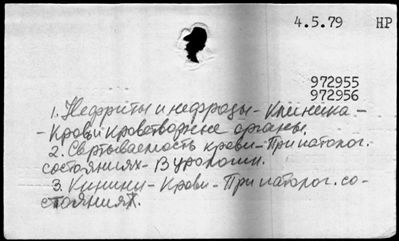 4.5.79 НР
972955
972956
1. Нефриты и нефрозы - Клиника -
- Кровь и кроветворные органы.
2. Свертываемость крови - При патолог.
состояниях - В урологии.
3. Кинины - Крови - При патолог. со-
стояниях.